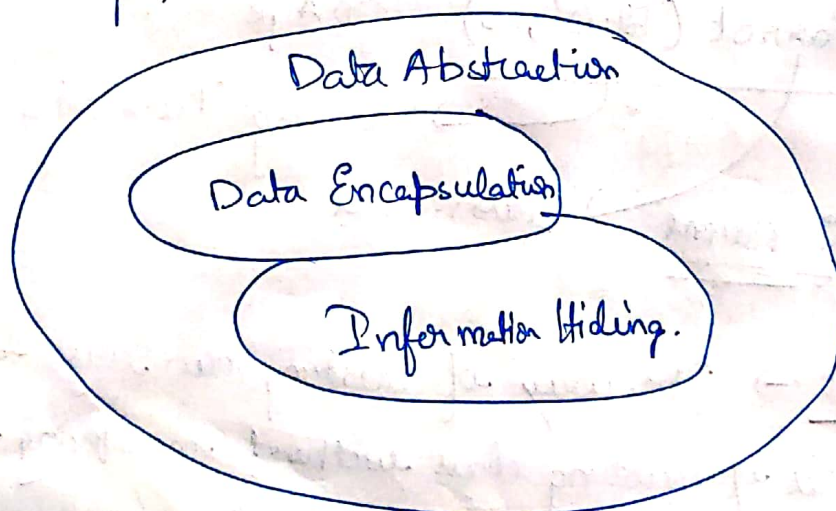 Data Abstraction
Data Encapsulation
Information Hiding.